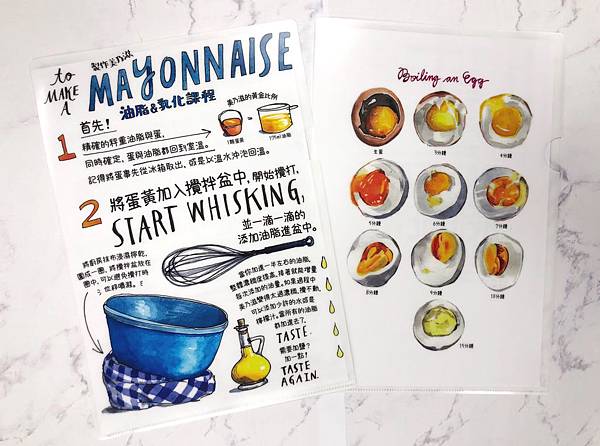 to
MAKE
A
製作美乃滋
MAYONNAISE
油脂&乳化課程
1 首先!
精確的秤重油脂與蛋,
同時確定,蛋與油脂都回到室溫。
記得將蛋事先從冰箱取出,或是以溫水沖泡回溫。
美乃滋的黃金比例
1顆蛋黃
175ml油脂
2 將蛋黃加入攪拌盆中,開始攪打,
START WHISKING,
並一滴一滴的
添加油脂進盆中。
將廚房抹布浸濕擰乾,
圍成一圈,將攪拌盆放在
圈中,可以避免攪打時
當你加進一半左右的油脂,
整體濃稠度提高,接著就能增量
每次添加的油量。如果過程中
美乃滋變得太過濃稠,攪不動,
可以添加少許的水或是
檸檬汁。當所有的油脂
都加進去了,
TASTE.
需要加鹽?
加一點!
TASTE
AGAIN.
Boiling an Egg
生蛋
3分鐘
4分鐘
5分鐘
6分鐘
7分鐘
8分鐘
9分鐘
10分鐘
14分鐘